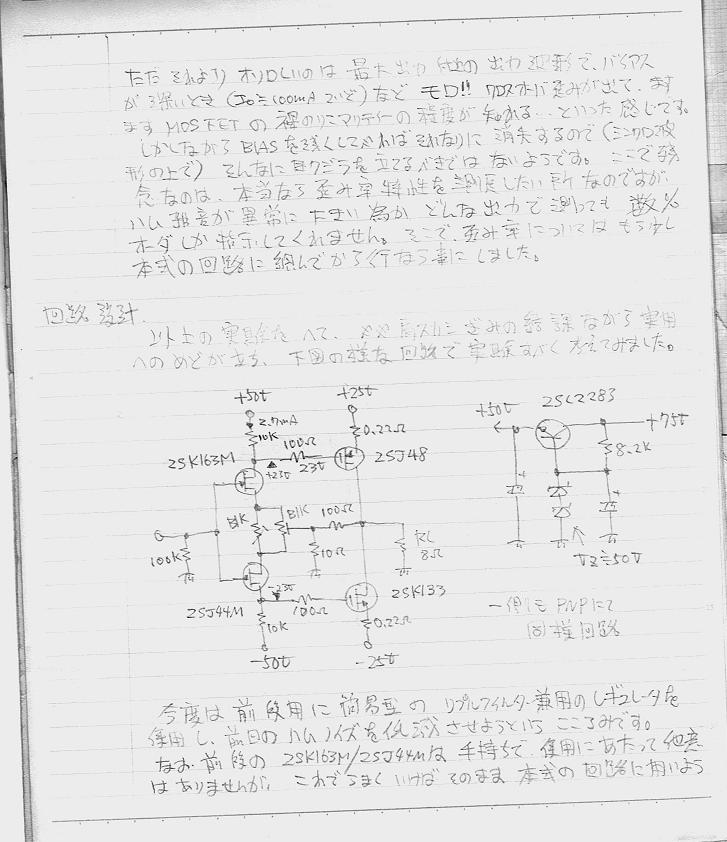 ただ それより オソロしいのは 最大出力 付近の 出力 波形で、バイアス
が深いとき (Io≒100mA ていど) など モロ!! クロスオーバ歪みが出て、ます
ます MOSFET の 裸のリニアリティーの 程度が 知れる‥といった感じです。
しかしながら BIAS を浅くしてやればそれなりに 消失するので (シンクロ波
形の上で) そんなに目クジラを立てるべきでは ないようです。ここで残
念なのは、本当なら 歪み率特性を測定したい所なのですが
ハム 雑音が異常に大きい為か どんな出力で測っても 数%
オーダしか指示してくれません。そこで、歪み率についてはもう少し
本式の回路に組んでから行なう事にしました。
回路設計.
以上の実験をへて、 ながら実用
へのめどが立ち、下図の様な回路で実験すべく考えてみました。
+50V
+25V
2.7mA
10K
100Ω
0.22Ω
2SK163M
+23V
23V
2SJ48
B1K
B1K
100Ω
100K
10Ω
RL
8Ω
-23V
2SJ44M
100Ω
2SK133
10K
0.22Ω
-50V
-25V
2SC2283
+50V
+75V
8.2K
VZ≒50V
-側も PNPにて
同様回路
今度は前段用に簡易型の リプルフィルター兼用のレギュレータを
使用し、前回のハムノイズを低減させようという こころみです。
なお 前段の 2SK163M/2SJ44Mは 手持ちで、使用にあたって他意
はありませんが、これでうまくいけばそのまま 本式の回路に用いよう